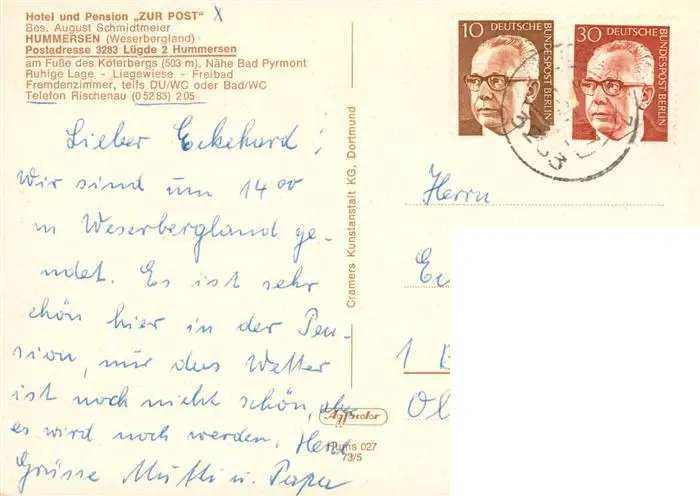 Hotel und Pension „ZUR POST" X
Bes. August Schmidtmeier
HUMMERSEN (Weserbergland)
Postadresse 3283 Lügde 2 Hummersen
am Fuße des Köterbergs (503 m), Nähe Bad Pyrmont
Ruhige Lage - Liegewiese - Freibad
Fremdenzimmer, teils DU/WC oder Bad/WC
Telefon Rischenau (0 52 83) 2 05
Lieber Eckehard!
Wir sind um 14 00
in Weserbergland ge-
ndet. Es ist sehr
schön hier in der Pen-
sion, nur das Wetter
ist noch nicht schön, aber
es wird noch werden. Herz
Grüsse Mutti u. Papa
Cramers Kunstanstalt KG, Dortmund
Agfacolor
Hums 027
73/5
10 DEUTSCHE BUNDESPOST BERLIN
30 DEUTSCHE BUNDESPOST BERLIN
3283
Herrn
Ec
1 B
Ol